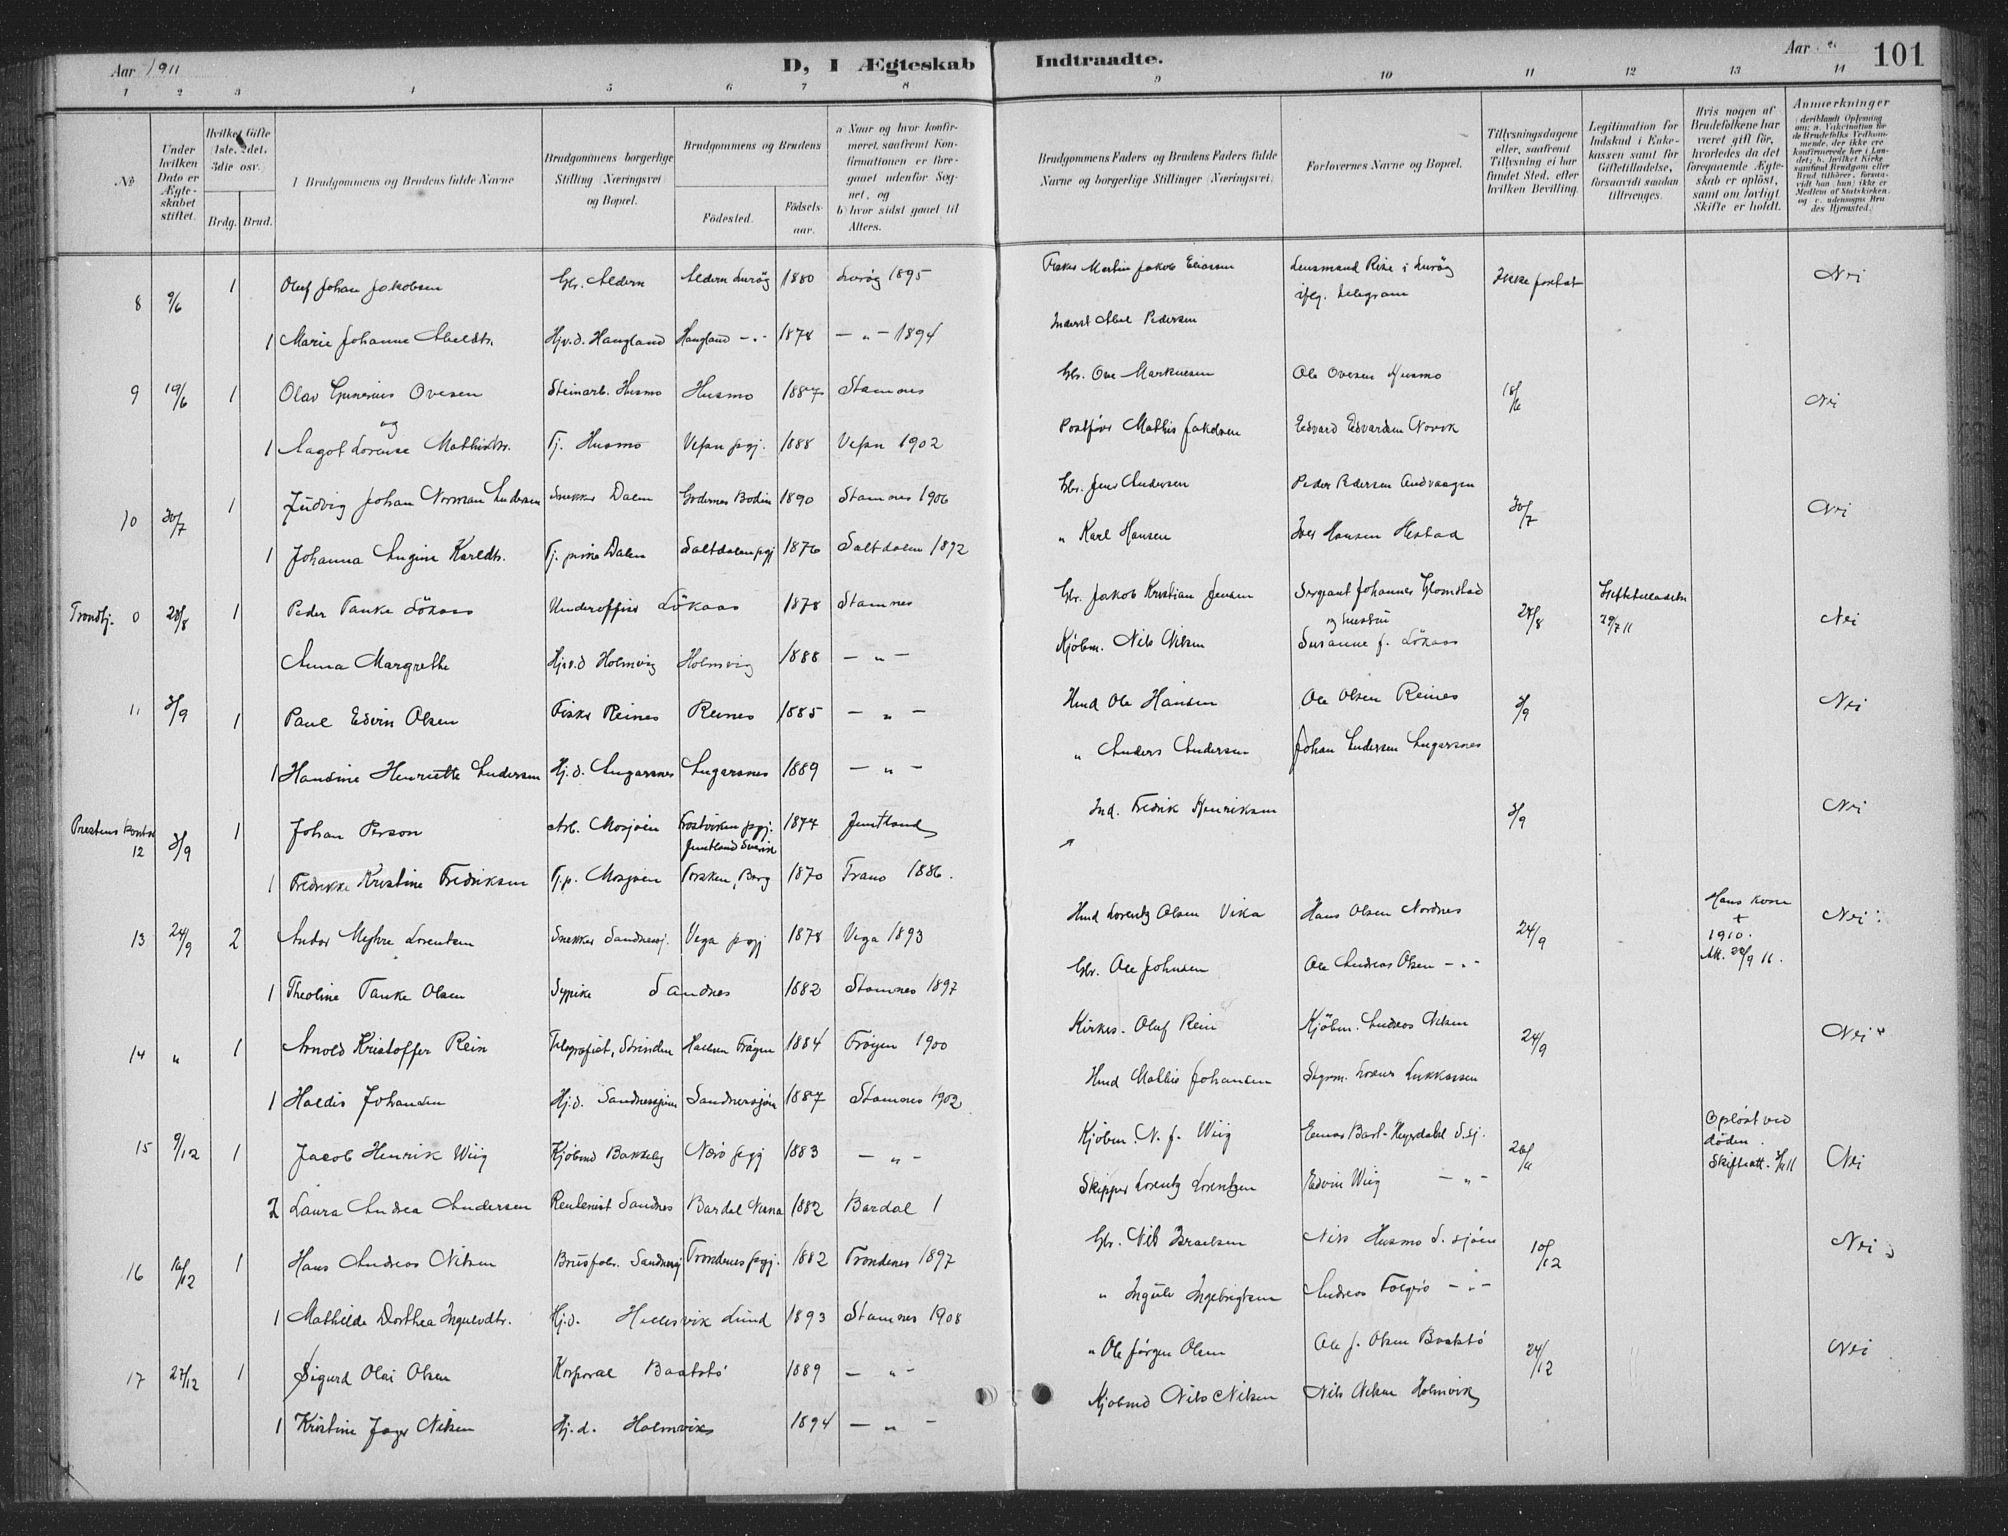 Aar 1911
D, I Ægteskab Indtraadte.
Aar "
101
1 2 3 4 5 6 7 8 9 10 11 12 13 14
No
Under hvilken Dato er Ægteskabet stiftet.
Hvilket Gifte (1ste, 2det, 3die osv.
Brdg. Brud.
Brudgommens og Brudens fulde Navne
Brudgommens borgerlige Stilling (Næringsvei) og Bopæl.
Brudgommens og Brudens
Födested.
Födselsaar.
a) Naar og hvor konfirmeret, saafremt Konfirmationen er foregaaet udenfor Sognet, og
b) hvor sidst gaaet til Alters.
Brudgommens Faders og Brudens Faders fulde Navne og borgerlige Stillinger (Næringsvei)
Forlovernes Navne og Bopæl.
Tillysningsdagene eller, saafremt Tillysning ei har fundet Sted, efter hvilken Bevilling.
Legitimation for Indskud i Enkekassen samt for Giftetilladelse, forsaavidt saadan tiltrænges.
Hvis nogen af Brudefolkene har været gift för, hvorledes da det foregaaende Ægteskab er oplöst, samt om lovligt Skifte er holdt.
Anmerkninger
8 9/6 1 Oluf Johan Jakobsen Gbr. Aldern Aldern Lurøy 1880 Lurøy 1895 Fisker Martin Jakob Eliassen Lensmand Rise i Lurøy Ikke foretat Nei
iflg. telegram
1 Marie Johanne Abeldtr. Hjv.d. Haugland Haugland -"- 1878 - " - 1894 Inderst Abel Pedersen
9 19/6 1 Olav Gunerius Ovesen Steinarb. Husmo Husmo 1887 Stamnes Gbr. Ove Markussen Ole Ovesen Husmo 18/6 Nei
og
1 Aagot Lorense Mathisdtr. Tj. Husmo Vefsn pgj. 1888 Vefsn 1902 Mathis Jakobsen Edvard Edvardsen Novik
10 30/7 1 Ludvig Johan Norman Andersen Snekker Dalen Bodin 1890 Stamnes 1906 Gbr. Jens Andersen Peder Pedersen Andvaagen 30/7 Nei
1 Johanna Karldtr. Tj. pike Dalen Saltdalen pgj 1876 Saltdalen 1892 " Karl Hansen Iver Hansen Hestad
Trondhj. 0 28/8 1 Peder Tanke Lökaas Underoffiser Lökaas 1878 Stamnes Gbr. Jakob Kristian Jensen Sergeant Johannes Glomstad 28/8 29/7 11 Nei
og hustru
Anna Margrethe Hjv.d Holmvig Holmvig 1888 - " - Kjöbm. Nils Nilsen Susanne f. Lökaas
11 3/9 1 Paul Edvin Olsen Fisker Reines Reines 1885 - " - Hmd Ole Hansen Ole Olsen Reines 3/9 Nei
1 Hansine Henriette Andersen Hj.d. 1889 - " - " Anders Andersen Johan Andersen
Prestens kontor
12 3/9 1 Johan Person Arb. Mosjøen Frostviken pgj. 1874 Jemtland Ind. Fredrik Henriksen 3/9 Nei
Jemtland Sverige
1 Fredrikke Kristine Fredriksen Tj.p. Mosjøen Torsken, Berg 1870 Trano 1886.
13 24/9 2 Andor Myhre Lorentsen Snekker Sandnessj. Vega pgj 1878 Vega 1893 Hmd Lorentz Olsen Vika Hans Olsen Nordnes 24/9 Hans kone + 1910. Att. 20/9 11. Nei
1 Theoline Tanke Olsen Sypike Sandnes 1882 Stamnes 1897 Gbr. Ole Johnsen Ole Andreas Olsen -"-
14 " 1 Arnold Kristoffer Rein Telegrafist, Strinden 1884 Fröyen 1900 Kirkes. Oluf Rein Kjöbm. Andreas Nilsen 24/9 Nei
1 Haldis Johansen Hj.d. Sandnessjøen Sandnessjøen 1887 Stamnes 1902 Hmd Mathis Johansen Lukkassen
15 9/12 1 Jacob Henrik Wiig Kjöbmd Bakkeby Nærö pgj 1883 - " - Kjöbm. N. J. Wiig 26/11 Oplöst ved döden. Skifteatt. Nei
2 Laura Andrea Andersen Sandnes Bardal Nesna 1882 Bardal 1 Skipper Lorentz Lorentzen Edvin Wiig - " -
16 10/12 1 Hans Andreas Nilsen Brusfabr. Sandnessj Trondenes pgj. 1882 Trondenes 1897 Gbr. Nils Israelsen Nils Husmo S. sjöen 10/12 Nei
1 Mathilde Dorthea Ingulvdtr. Hj.d. Hellesvik Lund 1893 Stamnes 1908 " Ingulv Ingebrigtsen Andreas - " -
17 27/12 1 Sigurd Olai Olsen Korporal Baatstö 1889 - " - " Ole Jörgen Olsen Ole J. Olsen Baatstö 24/12 Nei
1 Kristine Jager Nilsen Hj.d. Holmvik 1894 - " - Kjöbmd Nils Nilsen Nils Nilsen Holmvik